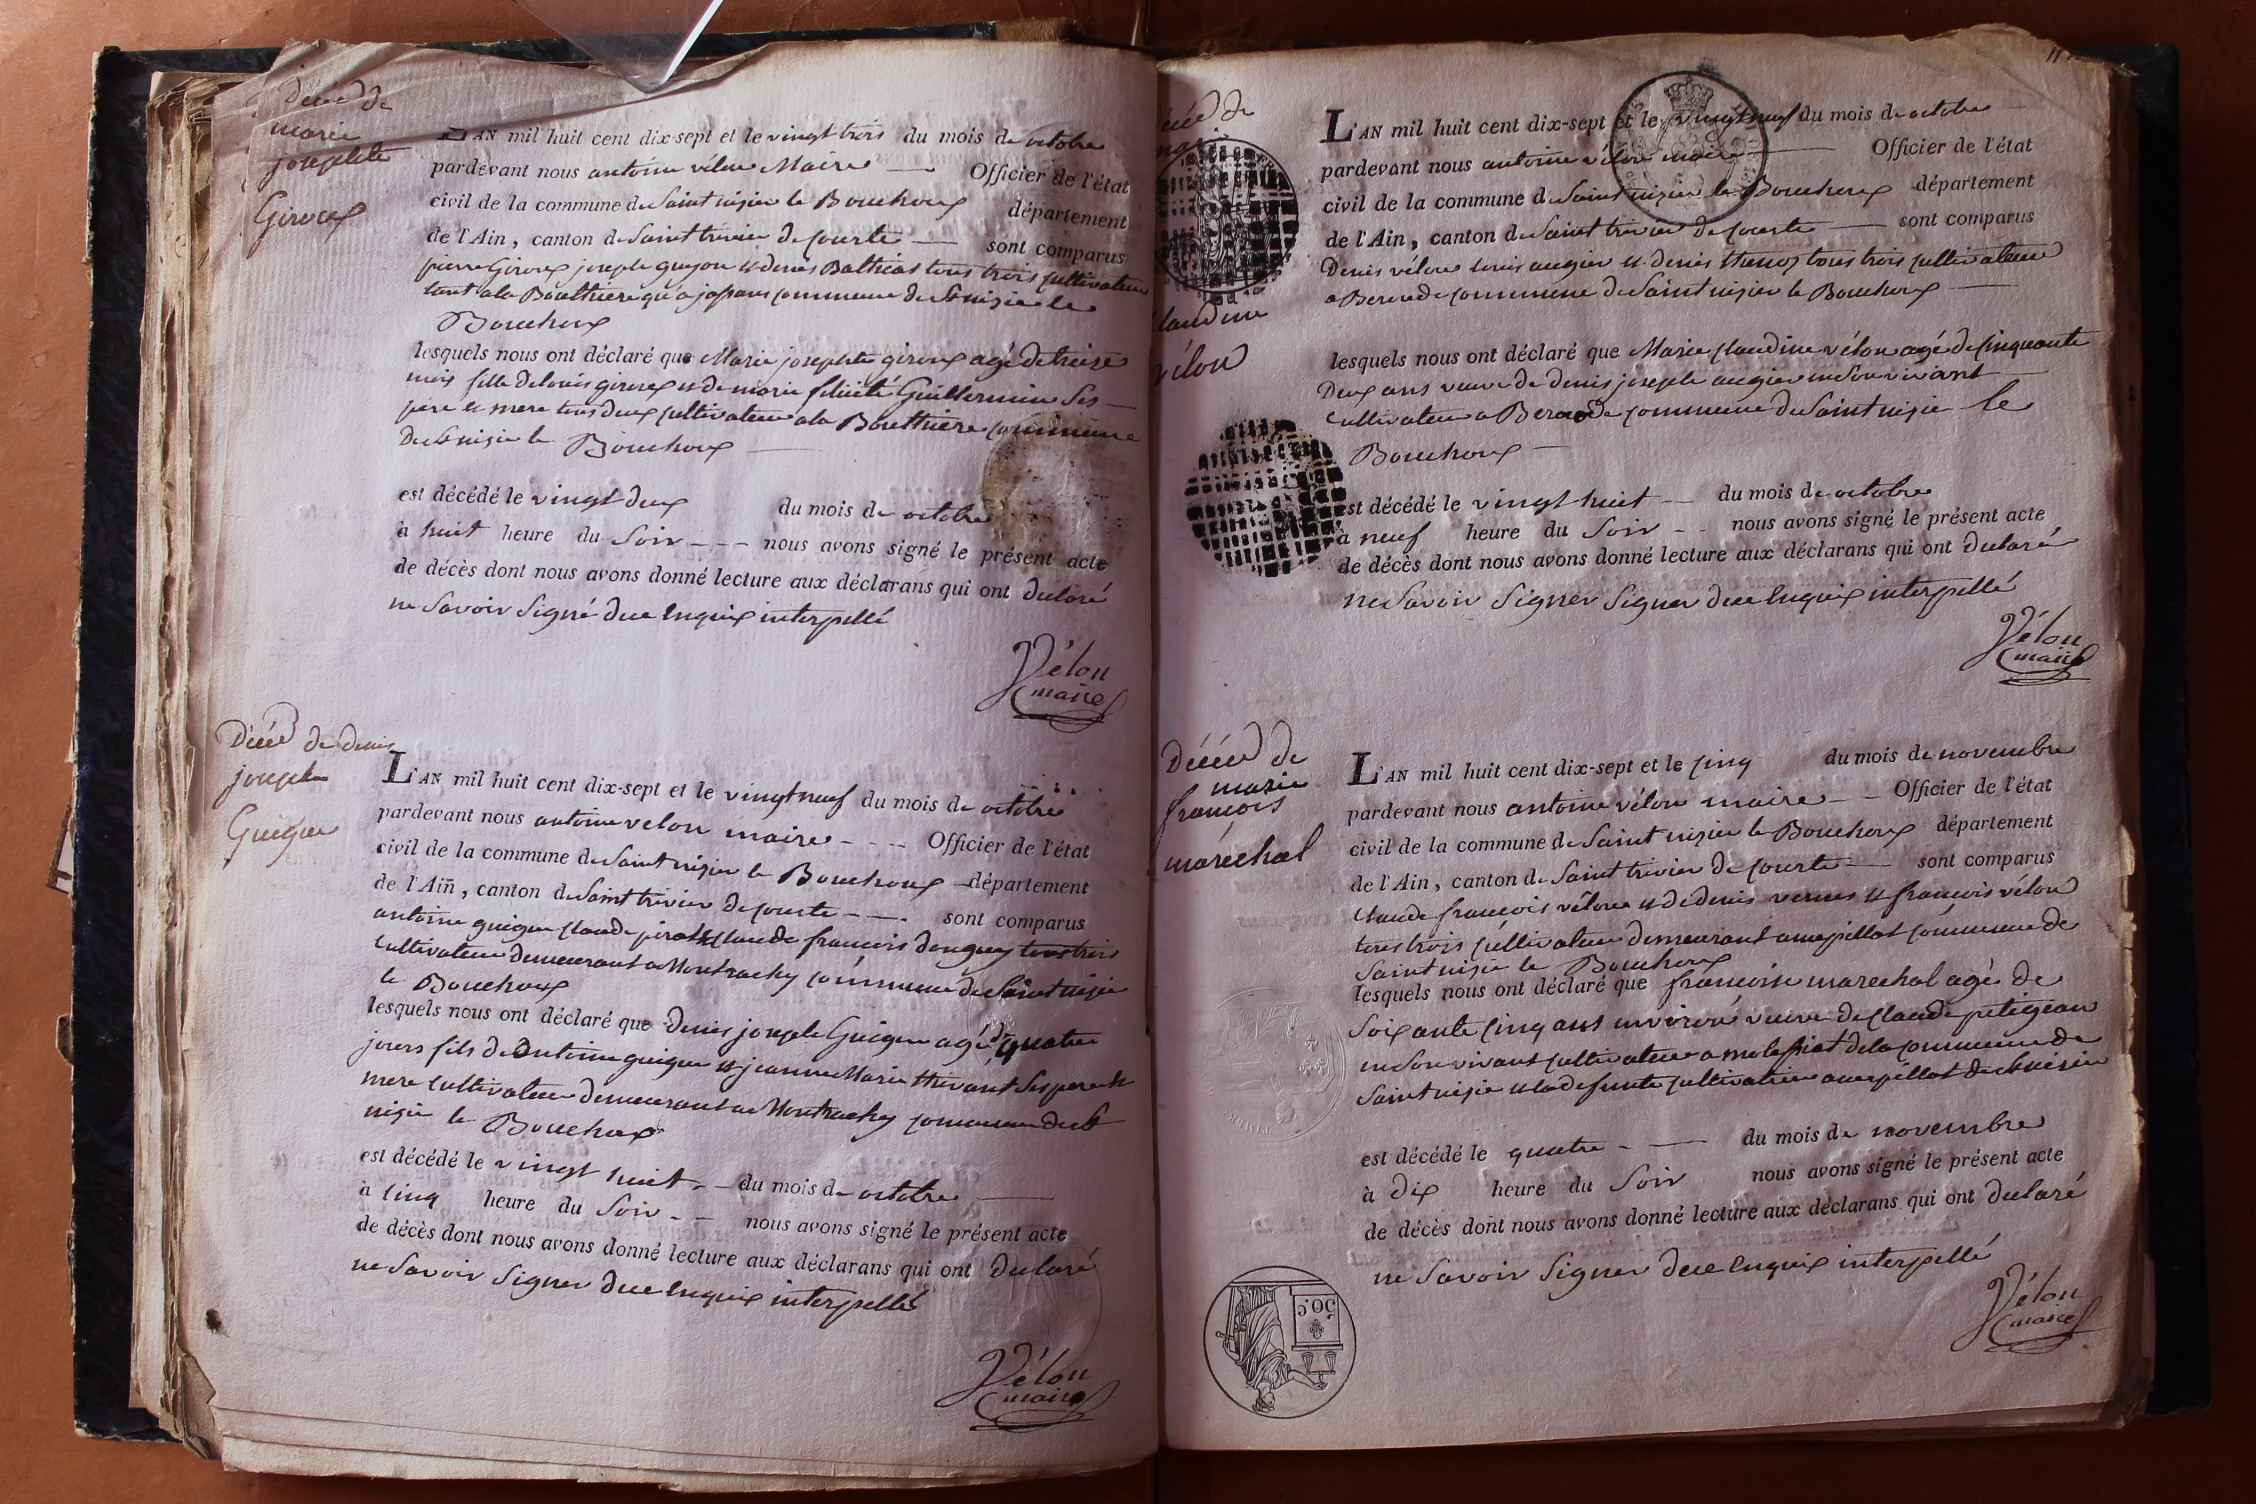 Décé de
marie
josephte
Giroux
L'AN mil huit cent dix-sept et le vingt trois du mois de octobre
pardevant nous antoine vélon Maire — Officier de l'état
civil de la commune de Saint nizier le Bouchoux département
de l'Ain, canton de Saint trivier de courte — sont comparus
pierre Giroux joseph guyon et denis Bathias tous trois cultivateur
tant a la Bouthiere qu'a commune de St nizier le
Bouchoux
lesquels nous ont déclaré que Marie josephte giroux agé de treize
mois fille de louis giroux et de marie félicité Guillermin ses
père et mere tous deux cultivateur a la Bouthiere commune
de St nizier le Bouchoux —
est décédé le vingt deux du mois de octobre
à huit heure du Soir - - - nous avons signé le présent acte
de décès dont nous avons donné lecture aux déclarans qui ont declaré
ne Savoir Signé de ce enquix interpellé
Vélon
maire
Décé de denis
joseph
Guigue
L'AN mil huit cent dix-sept et le vingt neuf du mois de octobre
pardevant nous antoine velon maire - - - Officier de l'état
civil de la commune de Saint nizier le Bouchoux département
de l'Ain, canton de Saint trivier de courte - — sont comparus
antoine guigue claude et claude francois donguy tous trois
cultivateur demeurant a Montrachy commune de Saint nizier
le Bouchoux
lesquels nous ont déclaré que denis joseph Guigue agé de quatre
jours fils de antoine guigue et jeanne Marie thevant Ses pere et
mere cultivateur demeurant a Montrachy commune de St
nizier le Bouchoux
est décédé le vingt huit - — du mois de octobre —
à cinq heure du Soir - — nous avons signé le présent acte
de décès dont nous avons donné lecture aux déclarans qui ont declaré
ne Savoir Signer de ce enquix interpellé
Vélon
maire
de
claudine
vélon
L'AN mil huit cent dix-sept et le vingt neuf du mois de octobre
pardevant nous antoine vélon maire — Officier de l'état
civil de la commune de Saint nizier le Bouchoux département
de l'Ain, canton de Saint trivier de courte — sont comparus
Denis vélon louis augier et denis thenoz tous trois cultivateur
a Berode commune de Saint nizier le Bouchoux —
lesquels nous ont déclaré que Marie claudine vélon agé de cinquante
Deux ans veuve de denis joseph augier en son vivant
cultivateur a Berode commune de Saint nizie le
Bouchoux —
est décédé le vingt huit — du mois de octobre
à neuf heure du Soir - - nous avons signé le présent acte
de décès dont nous avons donné lecture aux déclarans qui ont declaré
ne Savoir Signer Signer de ce enquix interpellé
Vélon
maire
Décée de
marie
francois
maréchal
L'AN mil huit cent dix-sept et le cinq du mois de novembre
pardevant nous antoine vélon maire - — Officier de l'état
civil de la commune de Saint nizier le Bouchoux département
de l'Ain, canton de Saint trivier de courte — sont comparus
claude francois vélon et de denis vernus et francois vélon
tous trois cultivateur demeurant a commune de
Saint nizie le Bouchoux
lesquels nous ont déclaré que francoise marechal agé de
Soixante cinq ans environ veuve de claude petigean
en Son vivant cultivateur a de la commune de
Saint nizie et la defunte cultivatrice a de St nizier
est décédé le quatre - — du mois de novembre
à dix heure du Soir nous avons signé le présent acte
de décès dont nous avons donné lecture aux déclarans qui ont declaré
ne Savoir Signer de ce enquix interpellé
Vélon
maire
50 c.